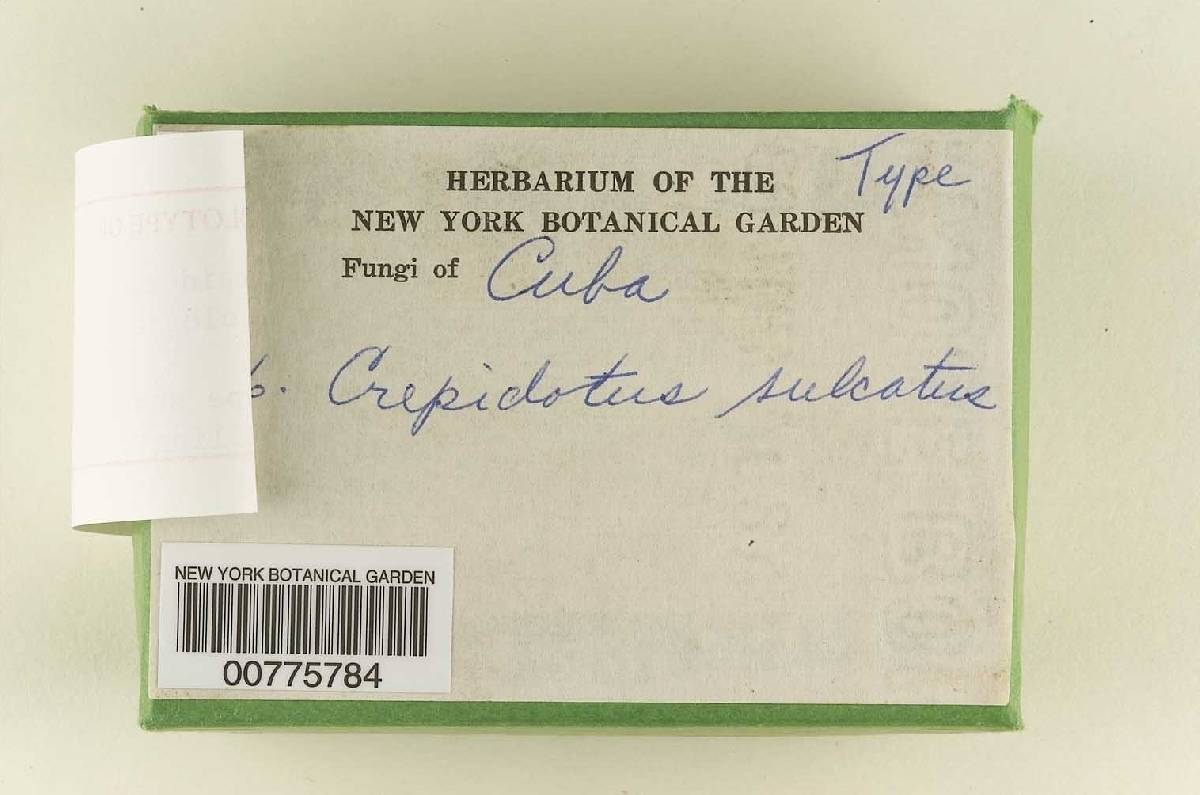 Type
HERBARIUM OF THE
NEW YORK BOTANICAL GARDEN
Fungi of Cuba
6. Crepidotus sulcatus
NEW YORK BOTANICAL GARDEN
00775784